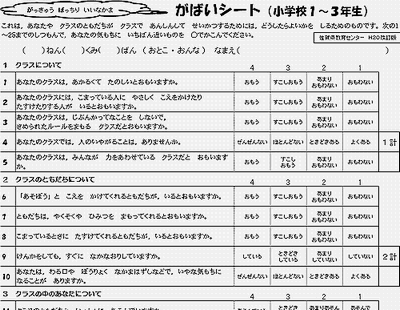 がっきゅう ばっちり いいなかま
がばいシート (小学校1～3年生)
これは、あなたや クラスのともだちが クラスで あんしんして せいかつするためには、どうしたらよいかを しるためのものです。次の1
～25までのしつもんで、あなたの気もちに いちばん近いものを ○でかこんでください。
佐賀県教育センター H20改訂版
( )ねん( )くみ( )ばん (おとこ・おんな) なまえ( )
1 クラスについて 4 3 2 1
1 あなたのクラスは、あかるくて たのしいとおもいますか。 おもう すこしおもう あまりおもわない おもわない
2 あなたのクラスには、こまっている人に やさしく こえをかけたり
たすけたりする人が いるとおもいますか。 おもう すこしおもう あまりおもわない おもわない
3 あなたのクラスは、じぶんかってなことを しないで、
きめられたルールをまもる クラスだとおもいますか。 おもう すこしおもう あまりおもわない おもわない
4 あなたのクラスでは、人のいやがることは、ありませんか。 ぜんぜんない ほとんどない ときどきある よくある 1計
5 あなたのクラスは、みんなが 力をあわせている クラスだと おもいます
か。 おもう すこしおもう あまりおもわない おもわない
2 クラスのともだちについて 4 3 2 1
6 「あそぼう」と こえを かけてくれるともだちが、いるとおもいますか。 おもう すこしおもう あまりおもわない おもわない
7 ともだちは、やくそくや ひみつを まもってくれるとおもいますか。 おもう すこしおもう あまりおもわない おもわない
8 こまっているときに たすけてくれるともだちが、いるとおもいますか。 おもう すこしおもう あまりおもわない おもわない
9 けんかをしても、すぐに なかなおりしていますか。 している ときどきしている あまりしていない していない 2計
10 あなたは、わる口や ぼうりょく なかまはずしなどで、いやな気もちに
なることが ありますか。 ぜんぜんない ほとんどない ときどきある よくある
3 クラスの中のあなたについて 4 3 2 1